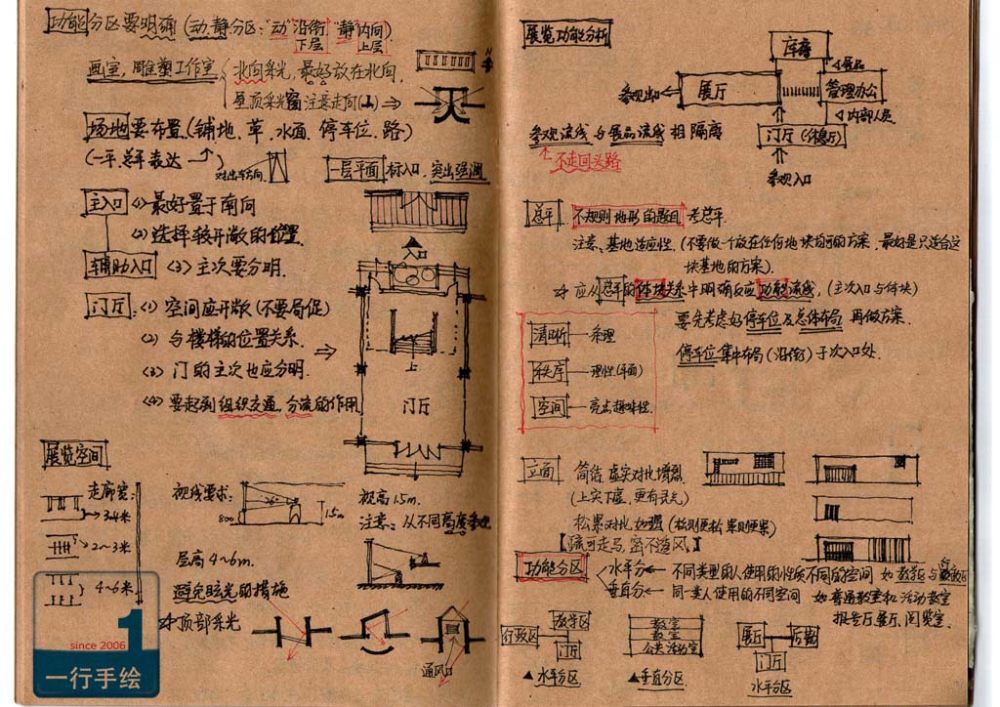 功能分区要明确(动.静分区:"动"沿街 "静"内向)
下层 上层
画室,雕塑工作室 北向采光,最好放在北向.
屋顶采光窗注意走向
场地要布置(铺地、草、水面、停车位、路)
(一平,总平表达
一层平面 标入口,突出强调
主入口 (1)最好置于南向
(2)选择较开敞的位置.
入口
辅助入口 (3)主次要分明.
门厅 (1)空间应开敞(不要局促)
(2)与楼梯的位置关系.
(3)门的主次也应分明.
(4)要起到组织交通,分流的作用
上
门厅
展览空间
走廊宽:
3~4米
2~3米
4~6米
视线要求:
800
1.5m
视高1.5m.
注意:从不同高度
层高4~6m.
避免眩光的措施
顶部采光
通风口
since 2006
1
一行手绘
展览功能分析
库房
展品
展厅
管理办公
参观出口
内部人员
门厅
参观入口
参观流线与展品流线相隔离
不走回头路
总平 不规则地形的题目 考总平.
注意、基地适应性.(不要做一个放在任何地块均可的方案.最好是只适合这
块基地的方案).
应从总平的体块关系中明确反应功能流线,(主次入口与体块)
要先考虑好停车位及总体布局 再做方案.
停车位集中布局(沿街)于次入口处.
清晰—条理
秩序—理性(平面)
空间
立面 简洁 虚实对比增强
(上实下虚,更有灵气)
松紧对比加强
【疏可走马,密不透风.】
功能分区 水平分← 不同类型的人使用的性质不同的空间 如 教学区与
垂直分← 同一类人使用的不同空间 如普通教室和活动教室
报告厅展厅、阅览室.
教学区
行政区
门厅
▲水平分区
教室
教室
公共活动室
▲垂直分区
展厅
门厅
水平分区